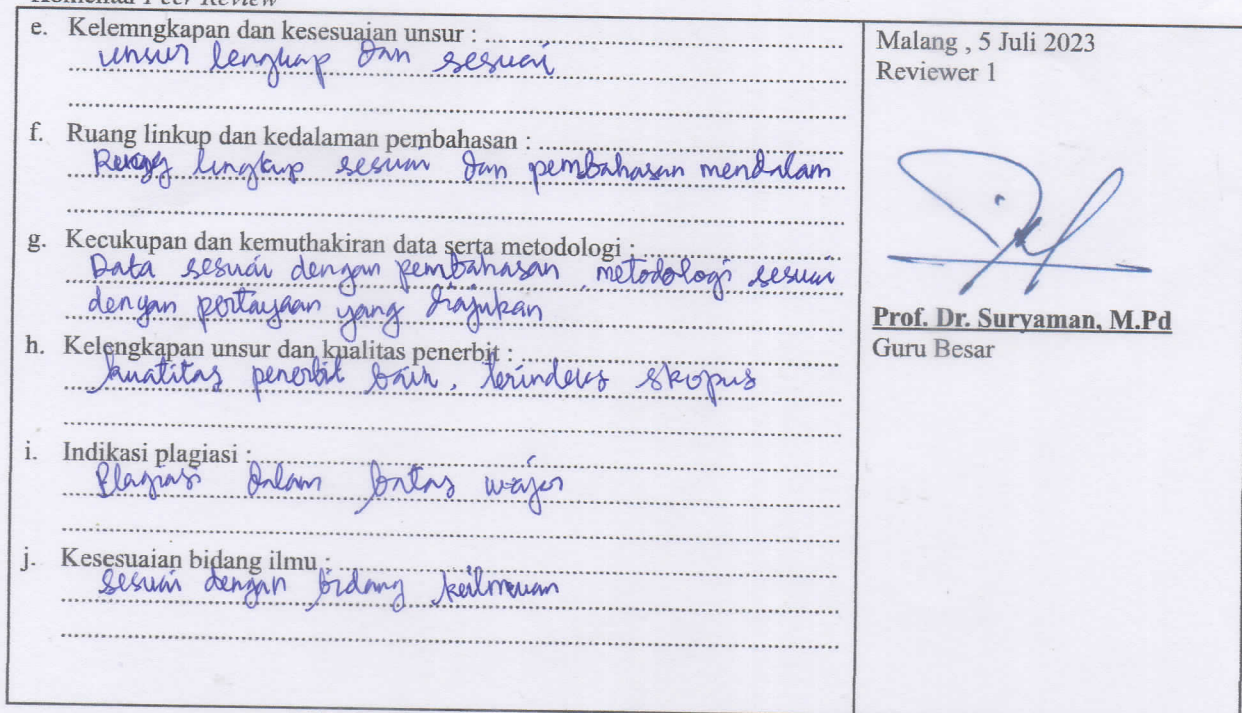 Komentar Peer Review
e. Kelemngkapan dan kesesuaian unsur :
unsur lengkap dan sesuai
f. Ruang linkup dan kedalaman pembahasan :
Ruang lingkup sesuai dan pembahasan mendalam
g. Kecukupan dan kemuthakiran data serta metodologi :
Data sesuai dengan pembahasan, metodologi sesuai
dengan pertayaan yang diajukan
h. Kelengkapan unsur dan kualitas penerbit :
kualitas penerbit baik, terindeks skopus
i. Indikasi plagiasi :
Plagiasi dalam batas wajar
j. Kesesuaian bidang ilmu :
sesuai dengan bidang keilmuan
Malang , 5 Juli 2023
Reviewer 1
Prof. Dr. Suryaman, M.Pd
Guru Besar